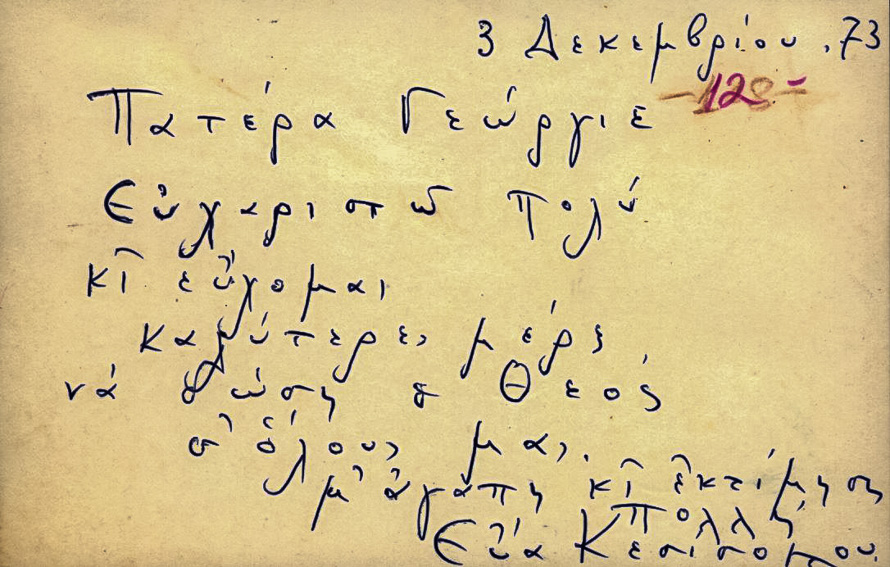 3 Δεκεμβρίου .73
-128-
Πατέρα Γεώργιε
Εὐχαριστῶ πολύ
κι εὔχομαι
καλύτερες μέρες
νά δώση ὁ Θεός
σ' ὅλους μας.
μ' ἀγάπη κι ἐκτίμηση
πολλή
Εὔα